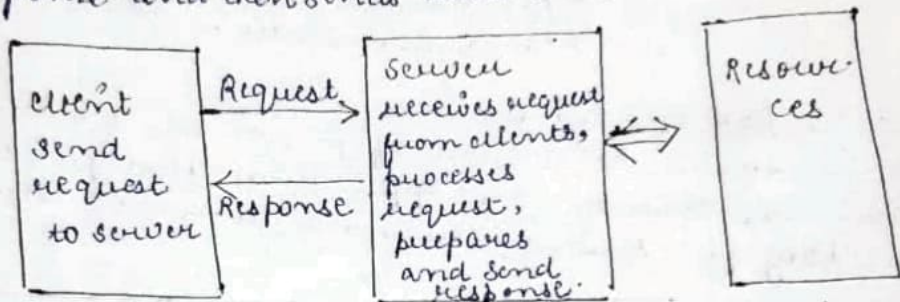 client
send
request
to server
Request
Response
server
receives request
from clients,
processes
request,
prepares
and send
response.
Resour-
ces